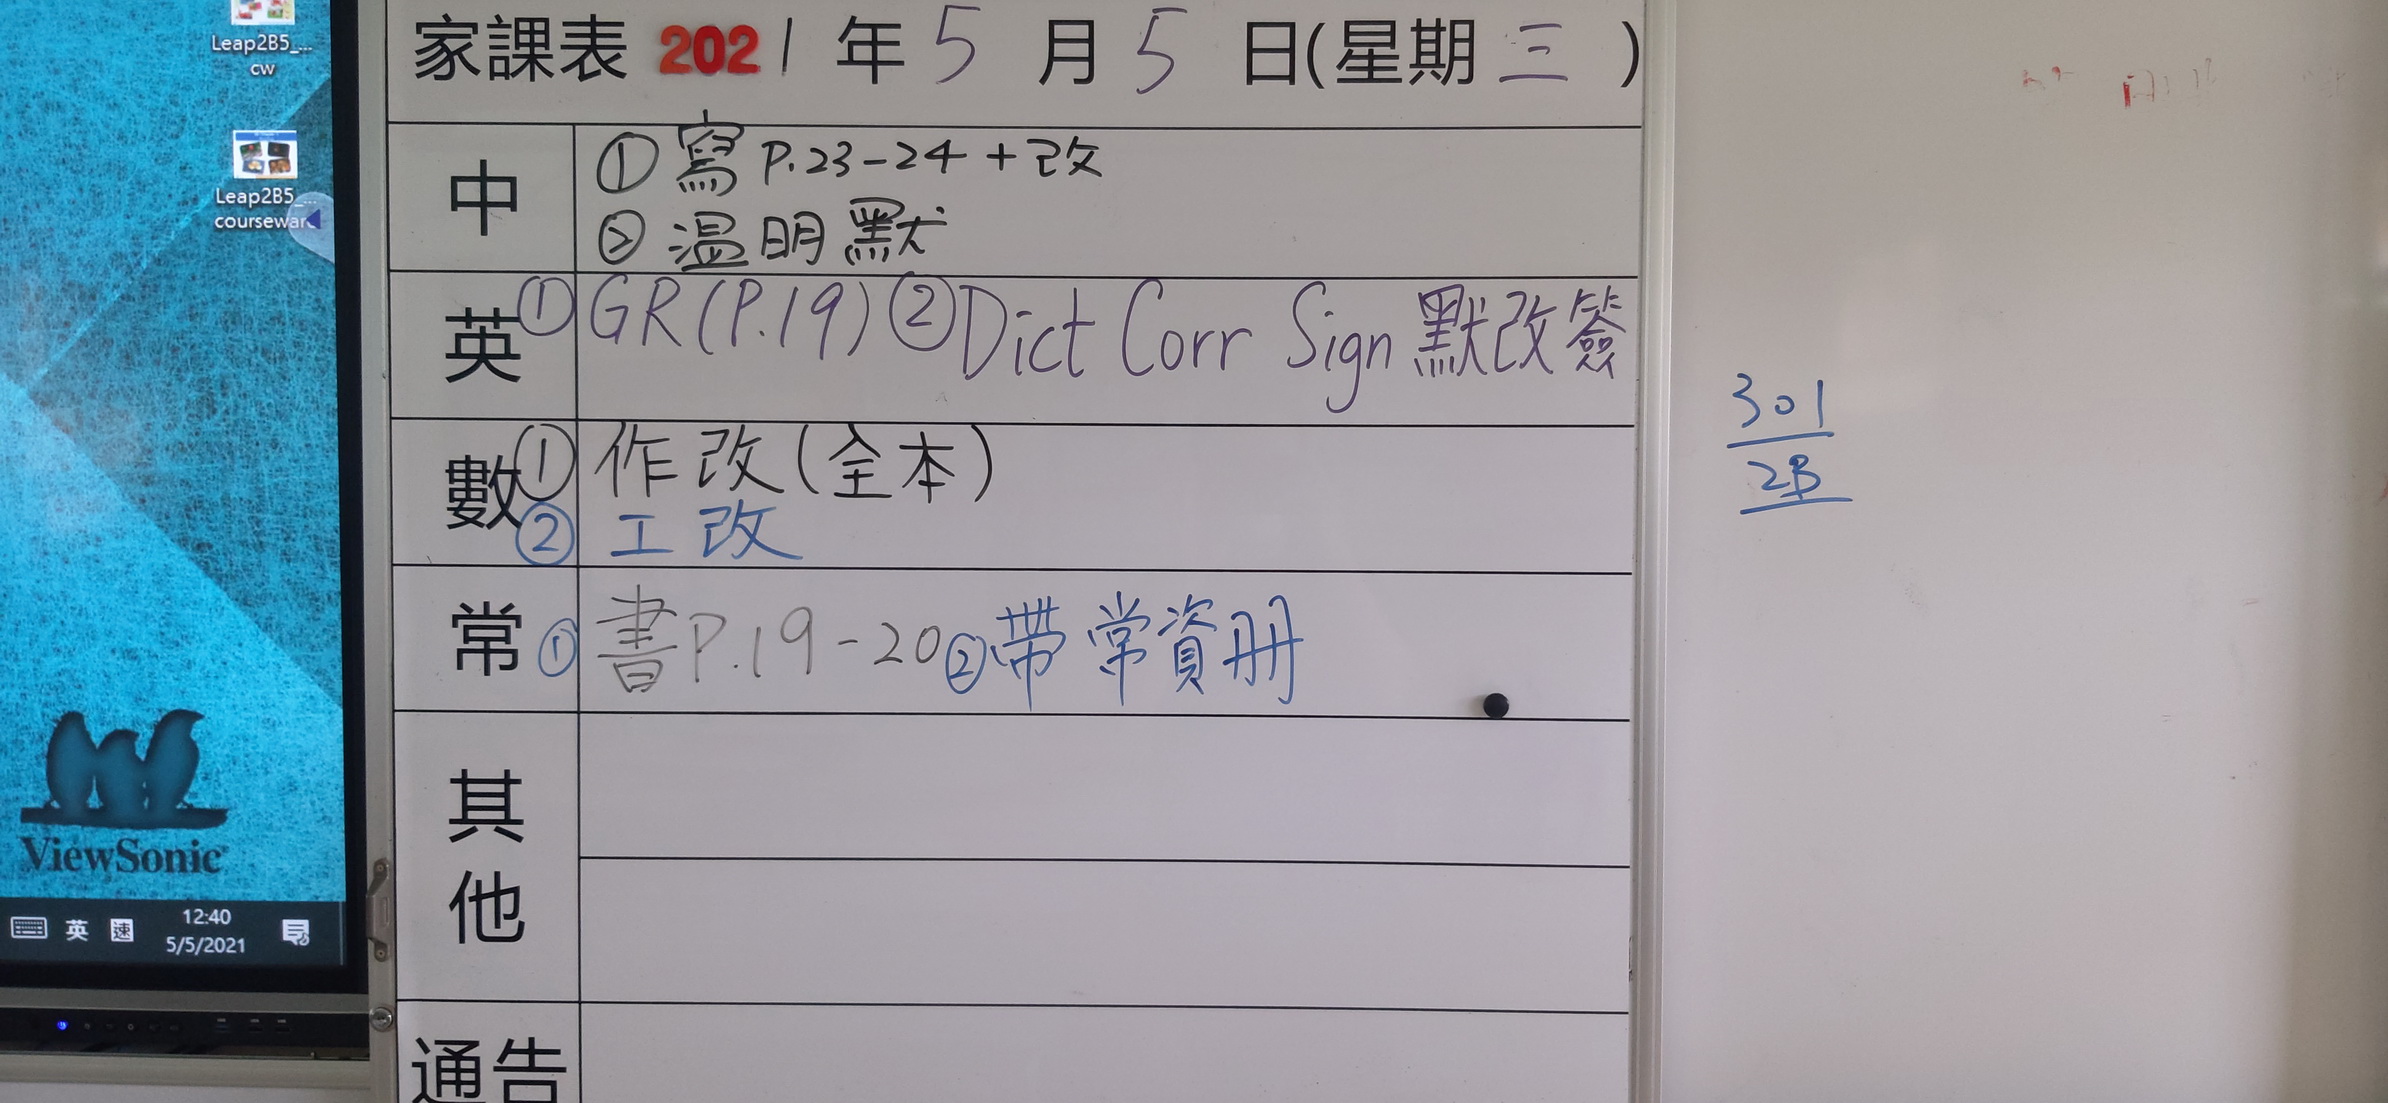 Leap2B5_...
cw
Leap2B5_...
courseware
ViewSonic
英 速 12:40
5/5/2021
家課表 2021年5月5日(星期三)
中
①寫P.23-24+改
②溫明默
英
①GR(P.19)②Dict Corr Sign 默改簽
數
①作改(全本)
②工改
常
①書P.19-20②帶常資冊
其他
通告
301
2B